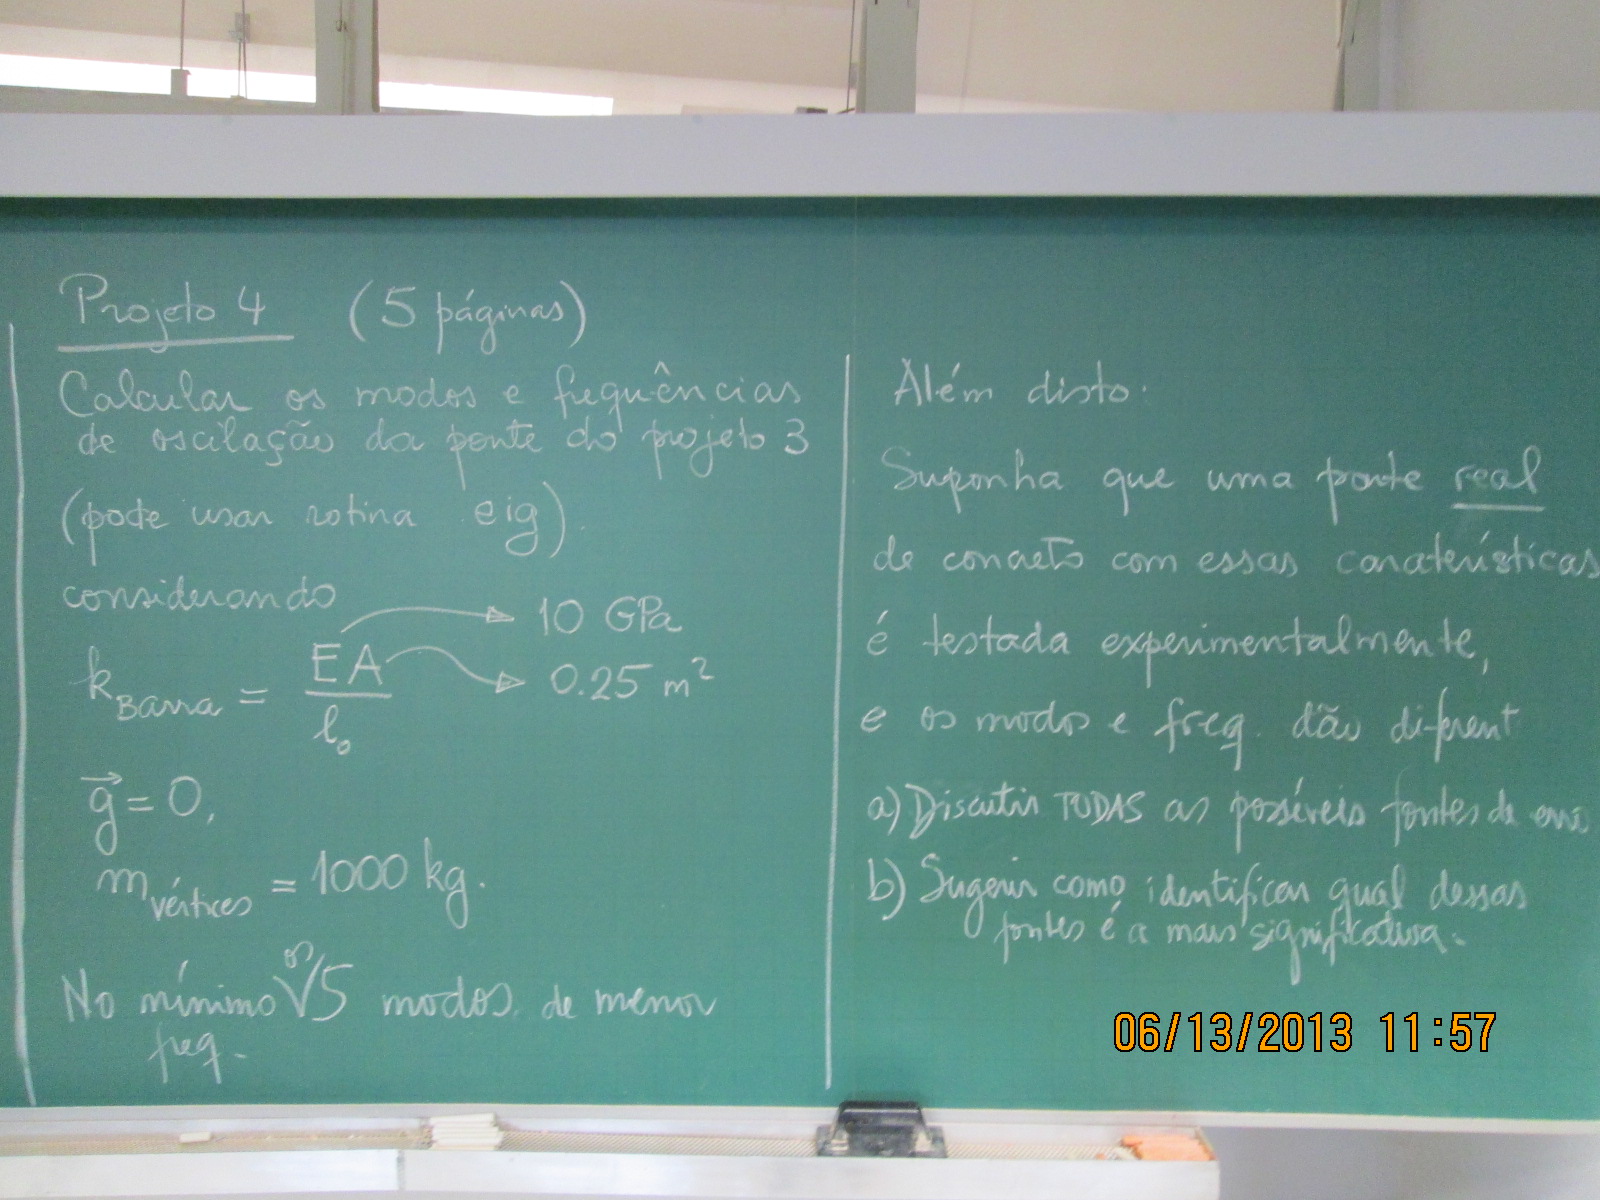 Projeto 4 (5 páginas)
Calcular os modos e frequências
de oscilação da ponte do projeto 3
(pode usar rotina eig).
considerando
k_Barra = EA / l_0
10 GPa
0.25 m²
g⃗ = 0,
m_vértices = 1000 kg.
No mínimo os 5 modos de menor
freq.
Além disto.
Suponha que uma ponte real
de concreto com essas caraterísticas
é testada experimentalmente,
e os modos e freq. dão diferent
a) Discutir TODAS as possíveis fontes de erro
b) Sugerir como identificar qual dessas
fontes é a mais significativa.
06/13/2013 11:57